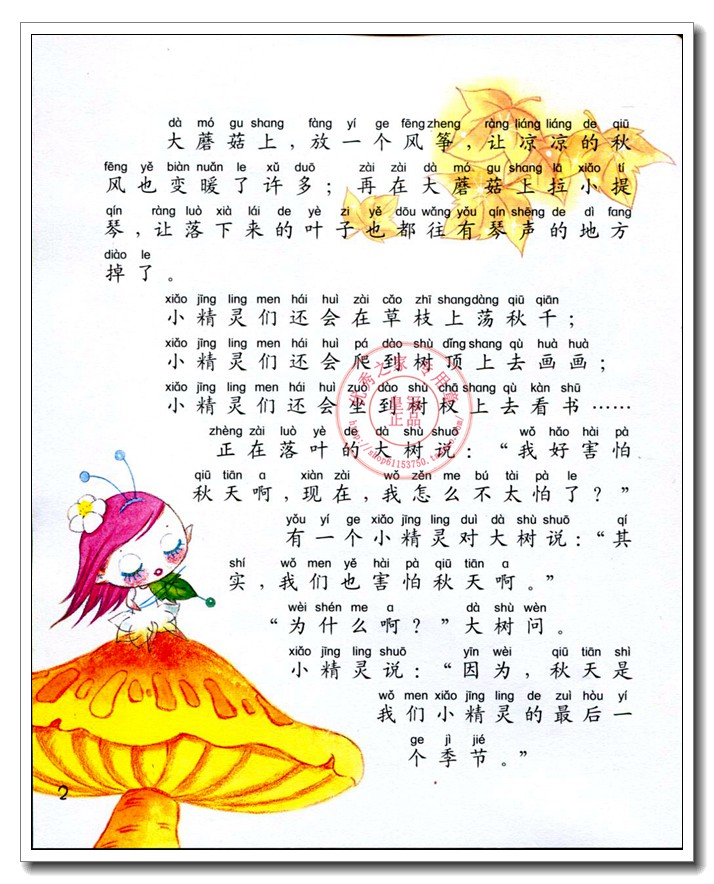 dà mó gu shang fàng yí ge fēng zheng ràng liáng liáng de qiū
大蘑菇上，放一个风筝，让凉凉的秋
fēng yě biàn nuǎn le xǔ duō zài zài dà mó gu shang lā xiǎo tí
风也变暖了许多；再在大蘑菇上拉小提
qín ràng luò xià lái de yè zi yě dōu wǎng yǒu qín shēng de dì fang
琴，让落下来的叶子也都往有琴声的地方
diào le
掉了。
xiǎo jīng ling men hái huì zài cǎo zhī shang dàng qiū qiān
小精灵们还会在草枝上荡秋千；
xiǎo jīng ling men hái huì pá dào shù dǐng shang qù huà huà
小精灵们还会爬到树顶上去画画；
xiǎo jīng ling men hái huì zuò dào shù chā shang qù kàn shū
小精灵们还会坐到树杈上去看书……
zhèng zài luò yè de dà shù shuō wǒ hǎo hài pà
正在落叶的大树说：“我好害怕
qiū tiān a xiàn zài wǒ zěn me bú tài pà le
秋天啊，现在，我怎么不太怕了？”
yǒu yí ge xiǎo jīng ling duì dà shù shuō qí
有一个小精灵对大树说：“其
shí wǒ men yě hài pà qiū tiān a
实，我们也害怕秋天啊。”
wèi shén me a dà shù wèn
“为什么啊？”大树问。
xiǎo jīng ling shuō yīn wèi qiū tiān shì
小精灵说：“因为，秋天是
wǒ men xiǎo jīng ling de zuì hòu yí
我们小精灵的最后一
ge jì jié
个季节。”
2